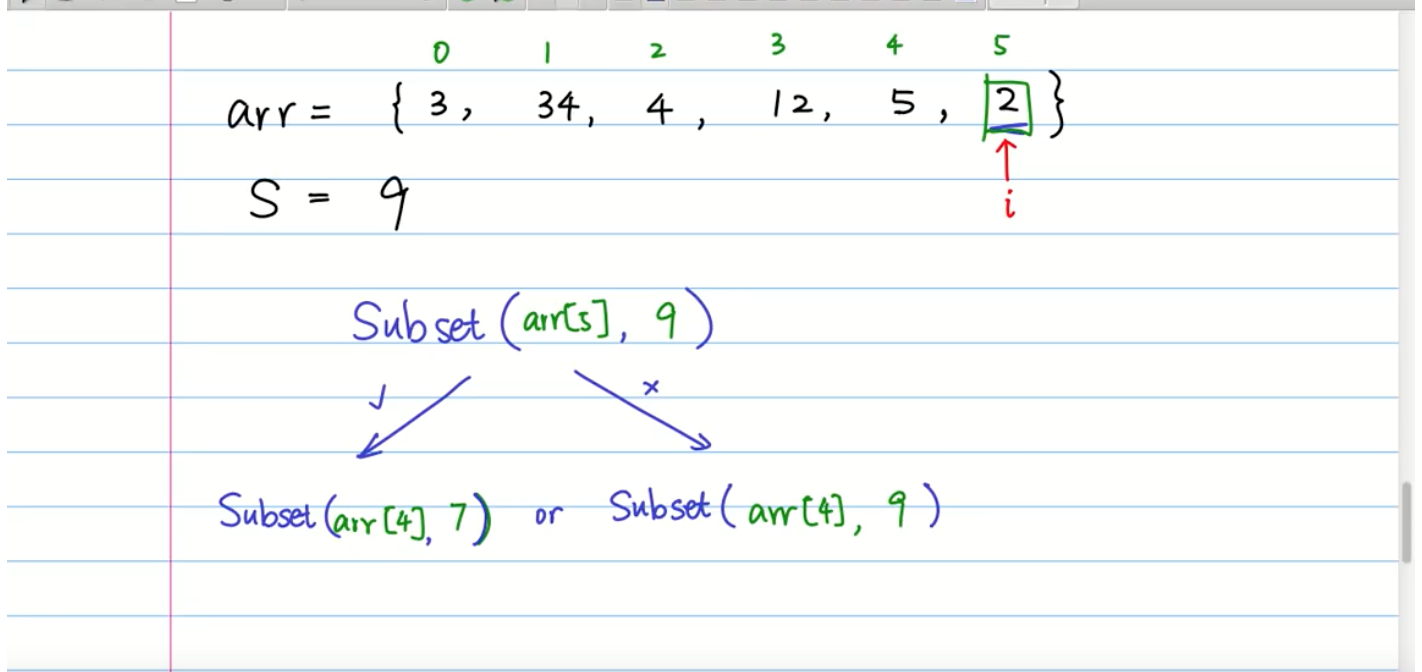 0 1 2 3 4 5
arr = { 3, 34, 4, 12, 5, 2 }
S = 9
i
Subset (arr[5], 9)
✓ ×
Subset (arr[4], 7) or Subset (arr[4], 9)